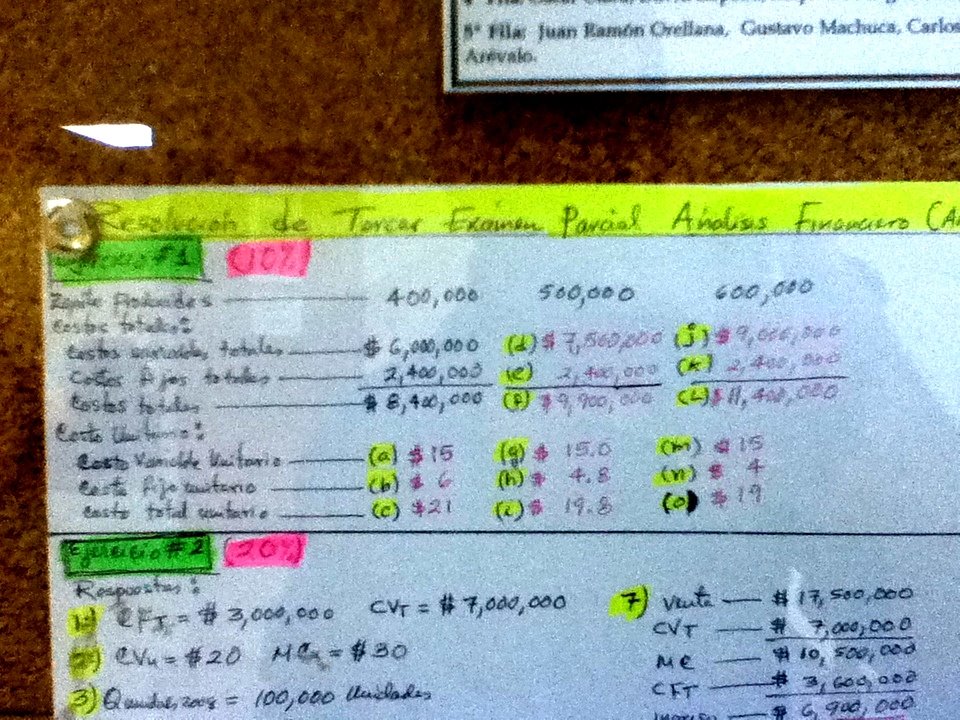 5ª Fila: Juan Ramón Orellana, Gustavo Machuca, Carlos
Arévalo.
Resolución de Tercer Examen Parcial Análisis Financiero
#1 (10%)
400,000 500,000 600,000
Costos totales:
Costos variables totales $6,000,000 (d) $7,500,000 (j) $9,000,000
Costos fijos totales 2,400,000 (e) 2,400,000 (k) 2,400,000
Costos totales $8,400,000 (f) $9,900,000 (L) $11,400,000
Costo Unitario:
Costo Variable Unitario (a) $15 (g) $15.0 (m) $15
Costo fijo unitario (b) $6 (h) $4.8 (n) $4
Costo total unitario (c) $21 (i) $19.8 (o) $19
Ejercicio #2 (20%)
Respuestas:
1) CFT = $3,000,000 CVT = $7,000,000
2) CVu = $20 MCu = $30
3) = 100,000 Unidades
7) Venta $17,500,000
CVT $7,000,000
MC $10,500,000
CFT $3,600,000
$6,900,000